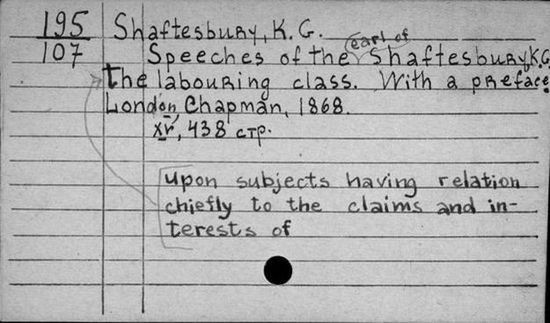 195
107
Shaftesbury, K. G.
Speeches of the earl of Shaftesbury, K.G.
the labouring class. With a preface
London, Chapman, 1868.
XV, 438 стр.
upon subjects having relation
chiefly to the claims and in-
terests of